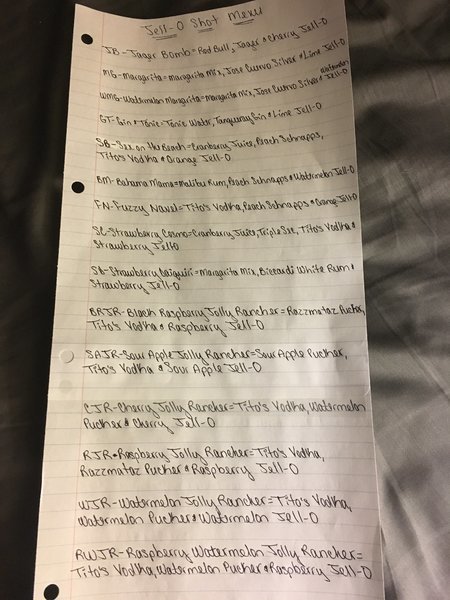 Jell-O Shot Menu
JB-Jager Bomb=Red Bull, Jager & Cherry Jell-O
MG-Margarita=margarita mix, Jose Cuervo Silver & Lime Jell-O
WMG-Watermelon Margarita=margarita mix, Jose Cuervo Silver & Watermelon Jell-O
GT-Gin & Tonic=Tonic Water, Tanqueray Gin & Lime Jell-O
SB-Sex on the Beach=Cranberry Juice, Peach Schnapps,
Tito's Vodka & Orange Jell-O
BM-Bahama Mama=Malibu Rum, Peach Schnapps & Watermelon Jell-O
FN-Fuzzy Navel=Tito's Vodka, Peach Schnapps & Orange Jell-O
SC-Strawberry Cosmo=Cranberry Juice, Triple Sec, Tito's Vodka &
Strawberry Jell-O
SD-Strawberry Daiquiri=Margarita Mix, Biccardi White Rum &
Strawberry Jell-O
BRJR-Black Raspberry Jolly Rancher=Razzmataz Pucker,
Tito's Vodka & Raspberry Jell-O
SAJR-Sour Apple Jolly Rancher=Sour Apple Pucker,
Tito's Vodka & Sour Apple Jell-O
CJR-Cherry Jolly Rancher=Tito's Vodka, Watermelon
Pucker & Cherry Jell-O
RJR-Raspberry Jolly Rancher=Tito's Vodka,
Razzmataz Pucker & Raspberry Jell-O
WJR-Watermelon Jolly Rancher=Tito's Vodka,
Watermelon Pucker & Watermelon Jell-O
RWJR-Raspberry Watermelon Jolly Rancher=
Tito's Vodka, Watermelon Pucker & Raspberry Jell-O